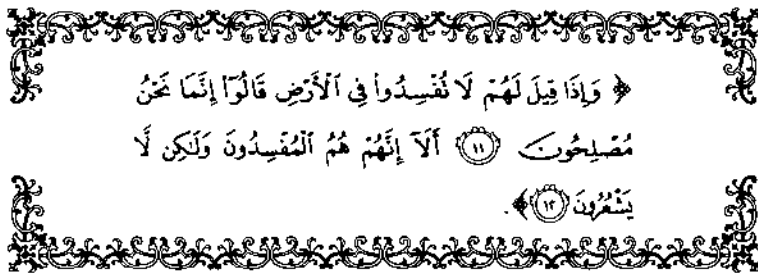 ﴿ وَإِذَا قِيلَ لَهُمْ لَا تُفْسِدُوا۟ فِى ٱلْأَرْضِ قَالُوٓا۟ إِنَّمَا نَحْنُ
مُصْلِحُونَ ١١ أَلَآ إِنَّهُمْ هُمُ ٱلْمُفْسِدُونَ وَلَٰكِن لَّا
يَشْعُرُونَ ١٢ ﴾.